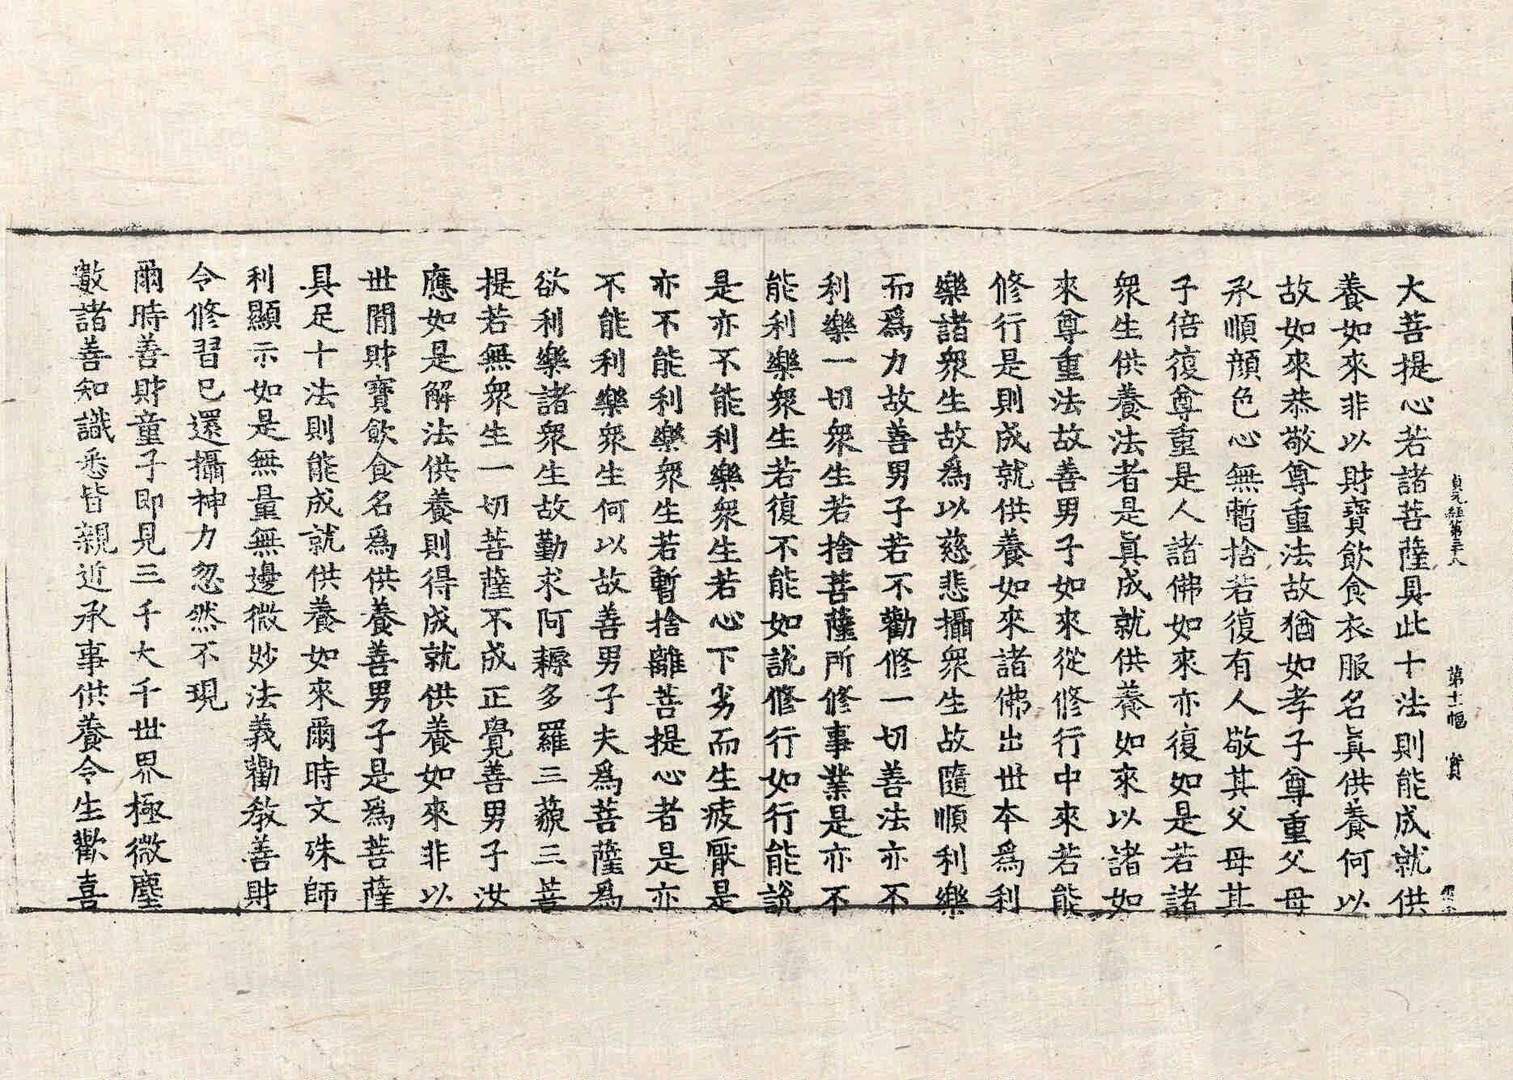 貞元經第三十八　第十二幅　實
大菩提心若諸菩薩具此十法則能成就供
養如來非以財寶飲食衣服名真供養何以
故如來恭敬尊重法故猶如孝子尊重父母
承順顔色心無暫捨若復有人敬其父母其
子倍復尊重是人諸佛如來亦復如是若諸
衆生供養法者是真成就供養如來以諸如
來尊重法故善男子如來從修行中來若能
修行是則成就供養如來諸佛出世本爲利
樂諸衆生故爲以慈悲攝衆生故隨順利樂
而爲力故善男子若不勸修一切善法亦不
利樂一切衆生若捨菩薩所修事業是亦不
能利樂衆生若復不能如說修行如行能說
是亦不能利樂衆生若心下劣而生疲厭是
亦不能利樂衆生若暫捨離菩提心者是亦
不能利樂衆生何以故善男子夫爲菩薩爲
欲利樂諸衆生故勤求阿耨多羅三藐三菩
提若無衆生一切菩薩不成正覺善男子汝
應如是解法供養則得成就供養如來非以
世間財寶飲食名爲供養善男子是爲菩薩
具足十法則能成就供養如來爾時文殊師
利顯示如是無量無邊微妙法義勸教善財
令修習已還攝神力忽然不現
爾時善財童子即見三千大千世界極微塵
數諸善知識悉皆親近承事供養令生歡喜